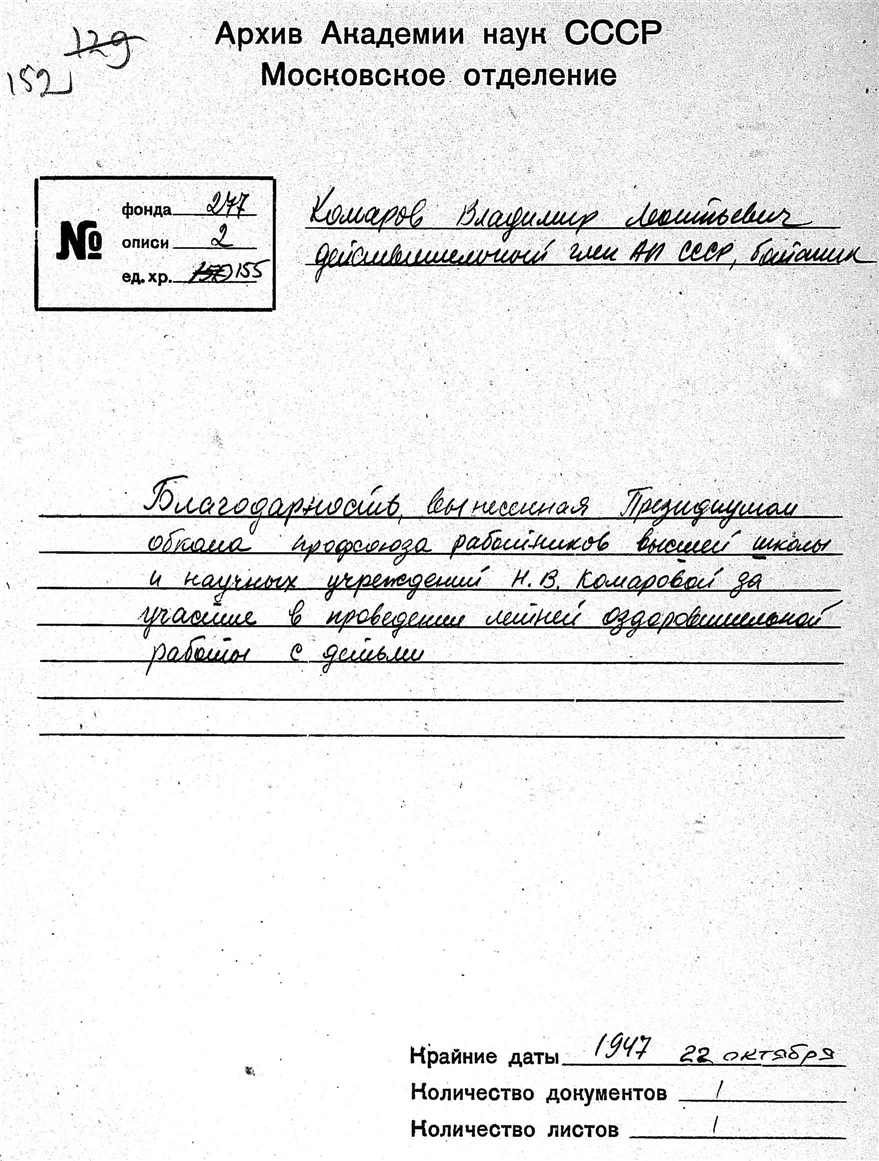 129
152
Архив Академии наук СССР
Московское отделение
№
фонда 277
описи 2
ед. хр. 155
Комаров Владимир Леонтьевич
действительный член АН СССР, ботаник
Благодарность, вынесенная Президиумом
обкома профсоюза работников высшей школы
и научных учреждений Н.В. Комаровой за
участие в проведении летней оздоровительной
работы с детьми
Крайние даты 1947 22 октября
Количество документов 1
Количество листов 1